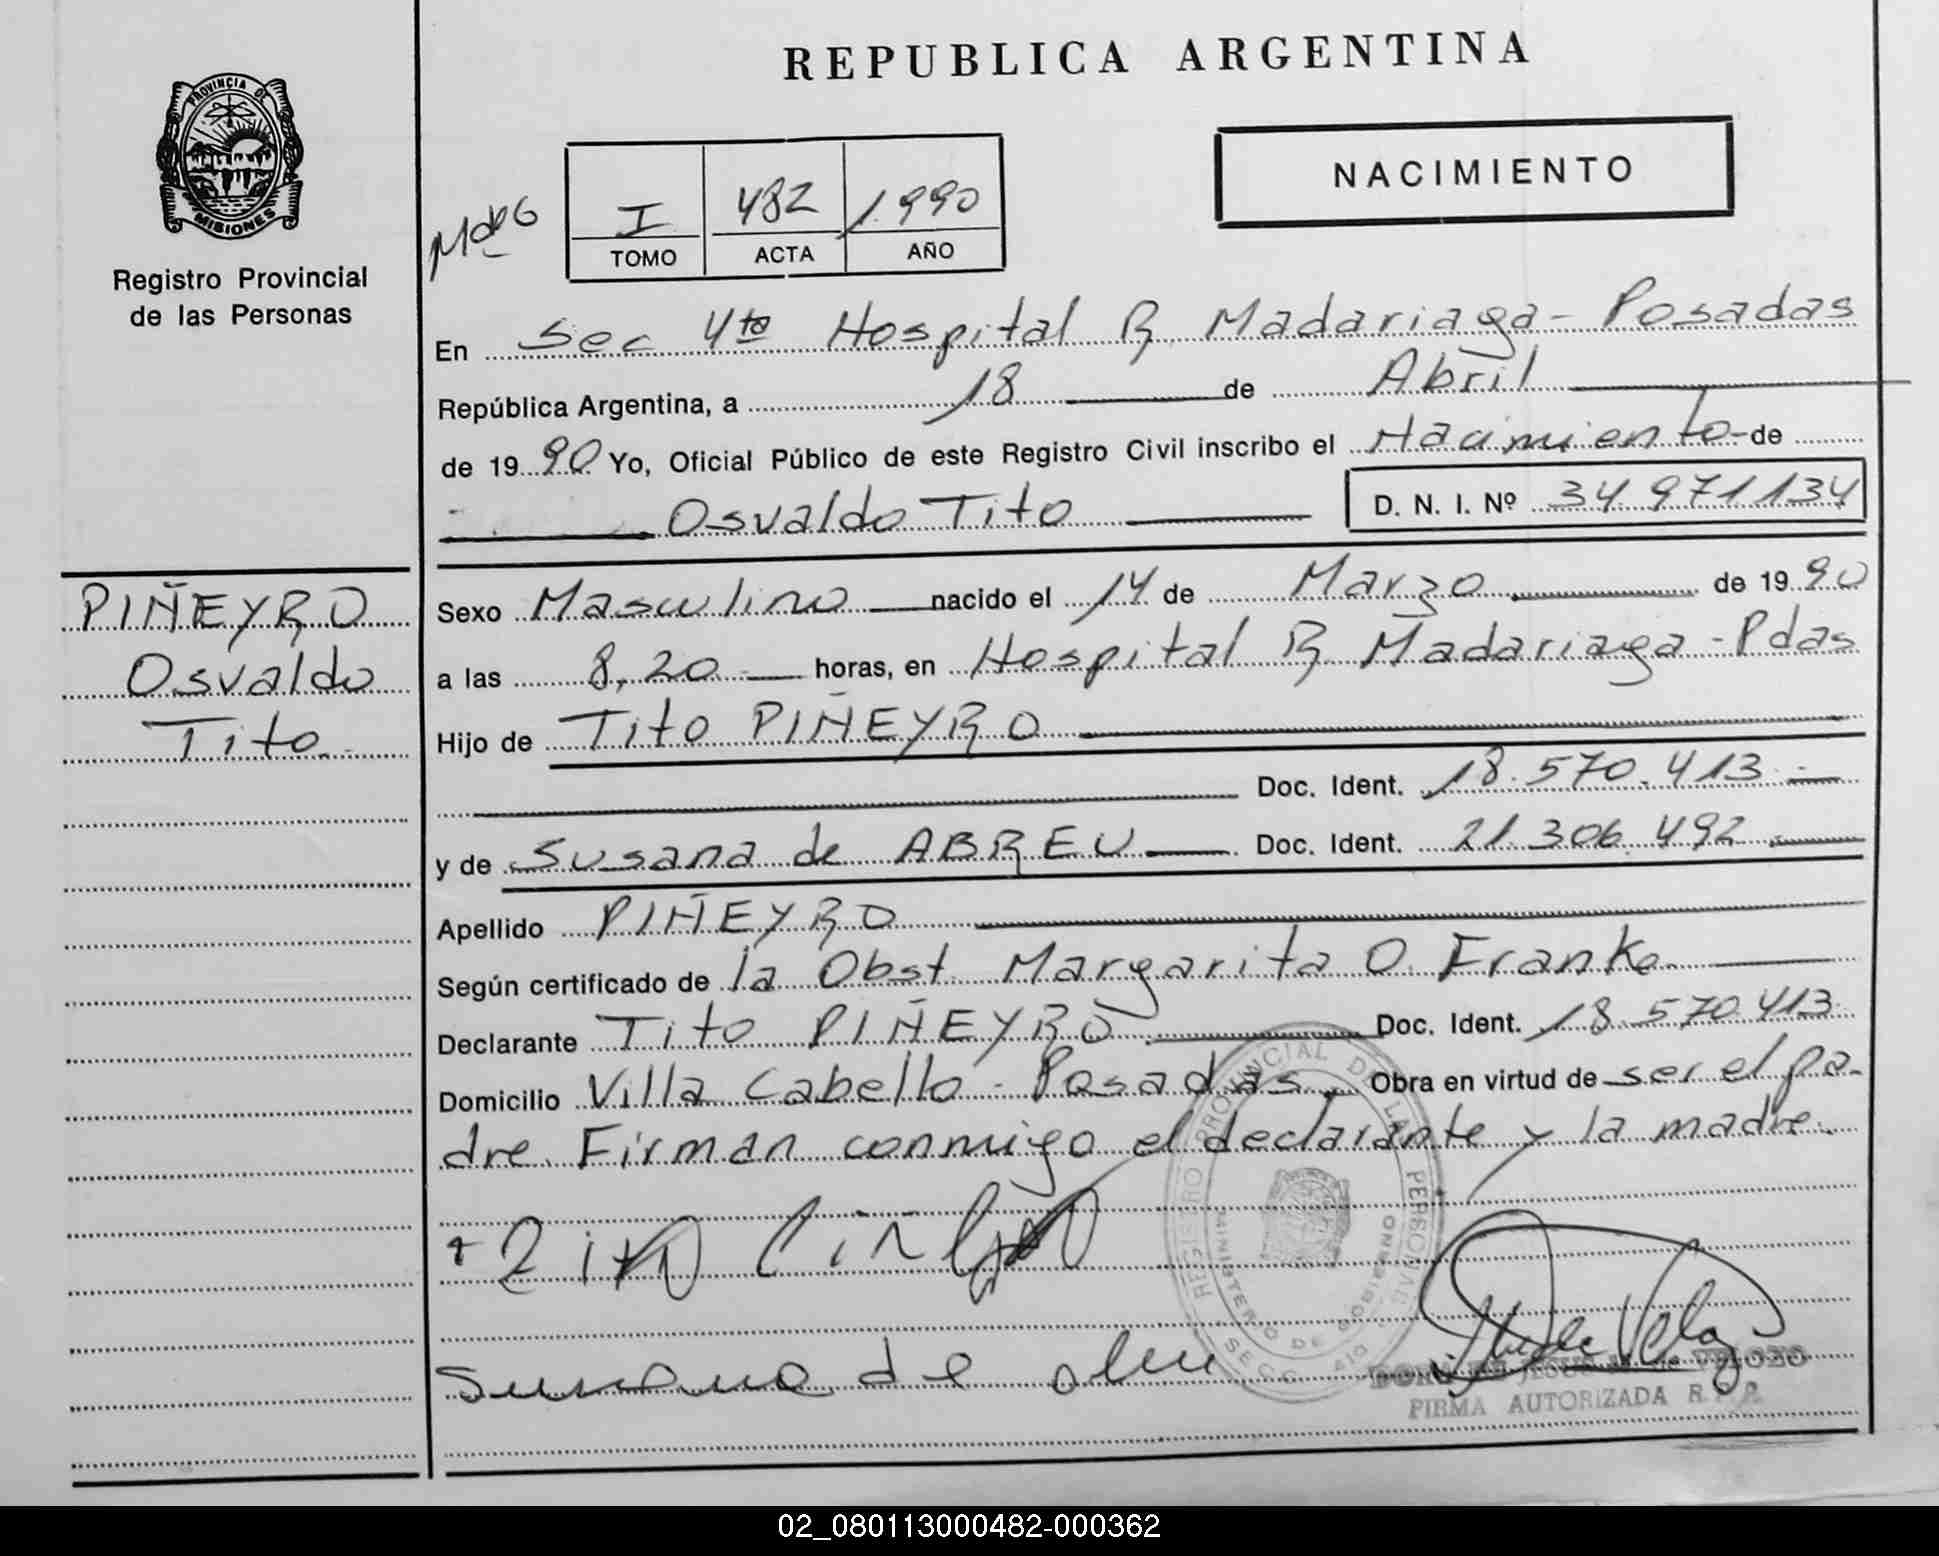 REPUBLICA ARGENTINA
PROVINCIA DE
MISIONES
Registro Provincial
de las Personas
NACIMIENTO
I 482 1.990
TOMO ACTA AÑO
En Sec 4ta Hospital R. Madariaga - Posadas
República Argentina, a 18 de Abril
de 1990 Yo, Oficial Público de este Registro Civil inscribo el Nacimiento de
Osvaldo Tito D. N. I. Nº 34.971.134
PIÑEYRO
Osvaldo
Tito
Sexo Masculino nacido el 14 de Marzo de 1990
a las 8,20 horas, en Hospital R. Madariaga - Pdas
Hijo de Tito PIÑEYRO
Doc. Ident. 18.570.413
y de Susana de ABREU Doc. Ident. 21.306.492
Apellido PIÑEYRO
Según certificado de la Obst. Margarita O. Franke
Declarante Tito PIÑEYRO Doc. Ident. 18.570.413
Domicilio Villa Cabello - Posadas. Obra en virtud de ser el pa-
dre. Firman conmigo el declarante y la madre.
REGISTRO PROVINCIAL DE LAS PERSONAS
MINISTERIO DE GOBIERNO
Susana de
DE JESUS
FIRMA AUTORIZADA R.P.P.
02_080113000482-000362